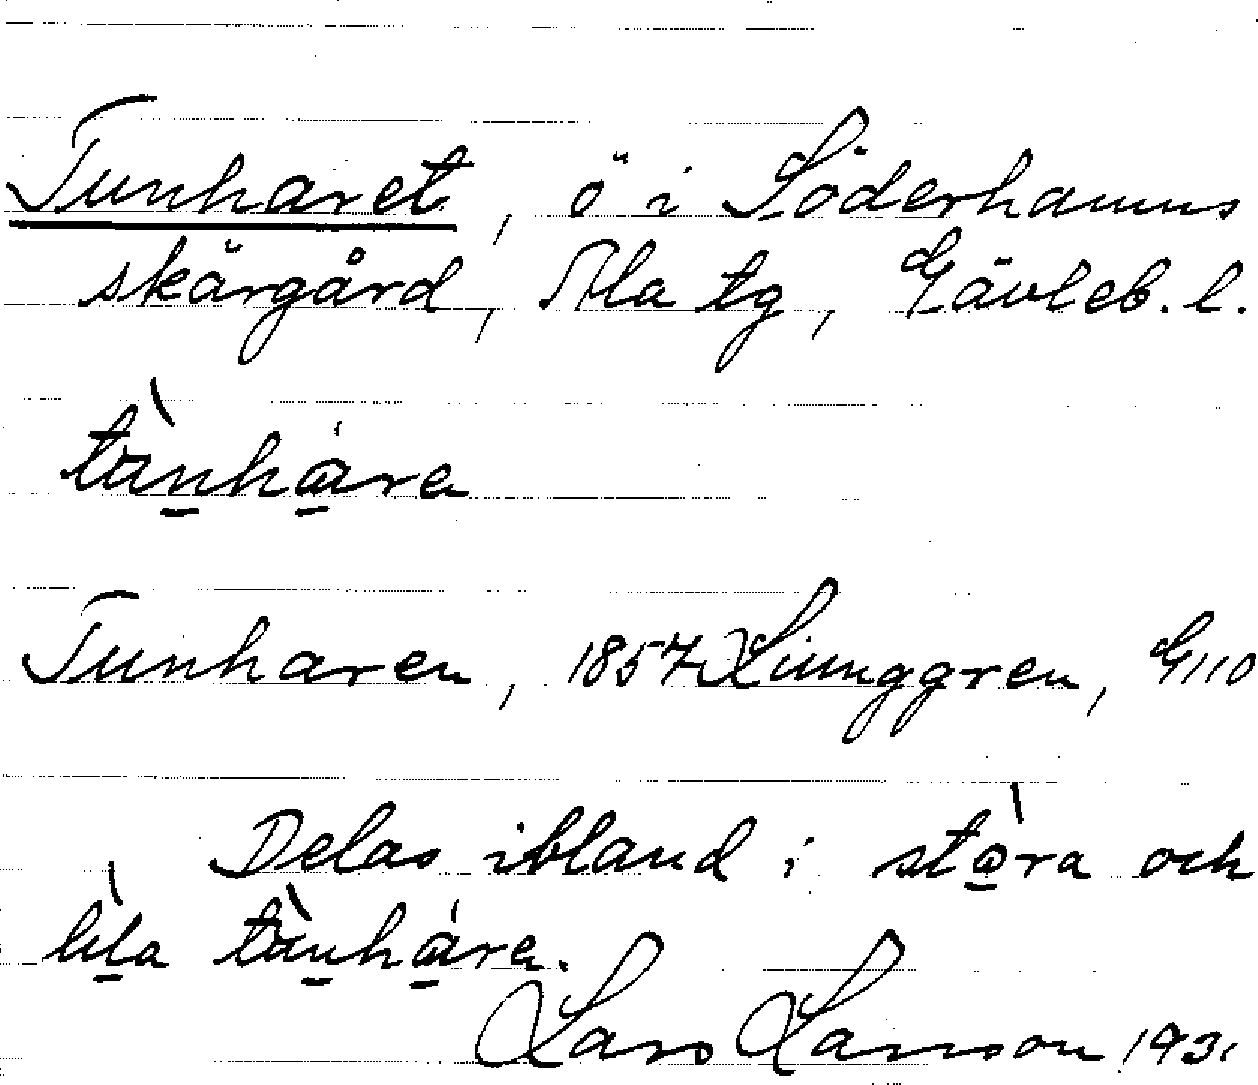 Tunharet, ö i Söderhamns
skärgård, Ala tg, Gävleb. l.
tànháre
Tunharen, 1857 Ljunggren, G110
Delas ibland i stòra och
lìla tànháre.
Lars Larsson 1931